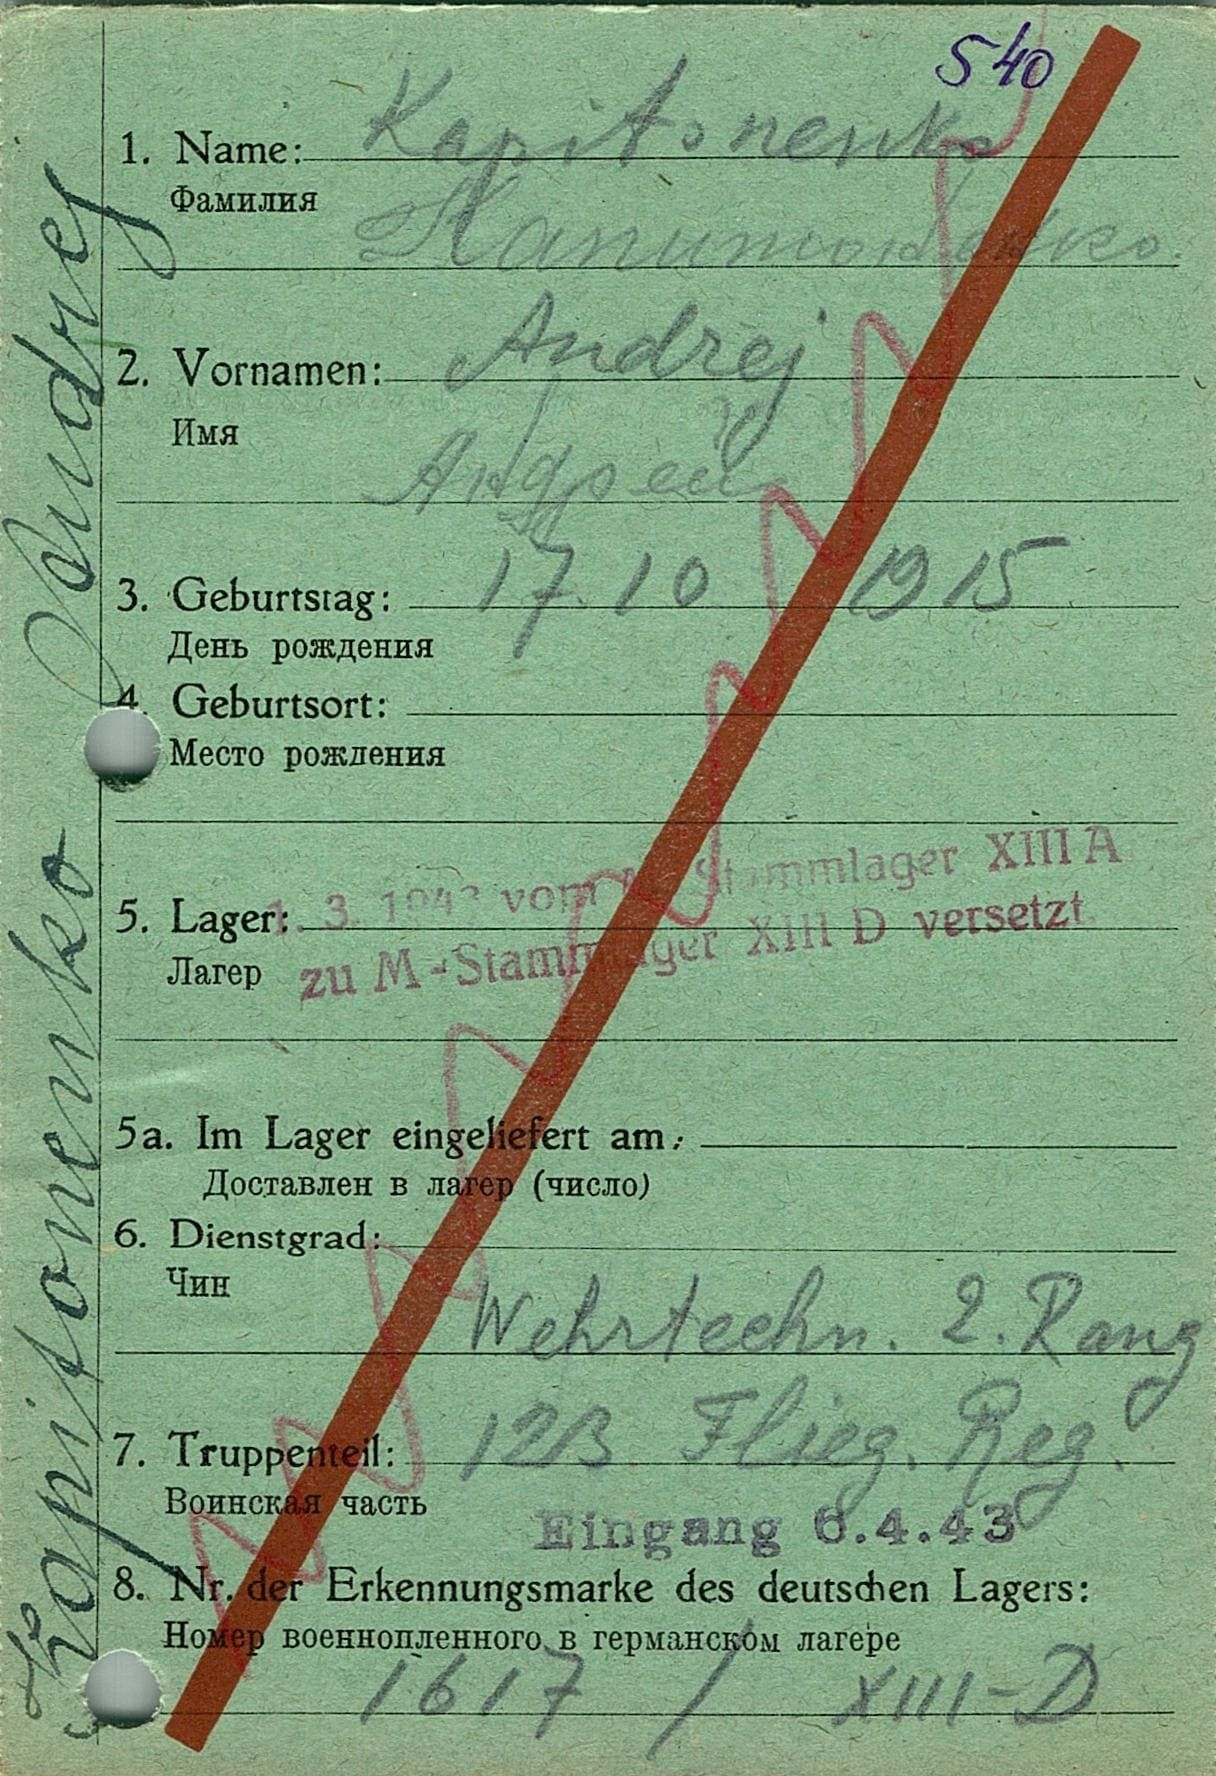 540
1. Name: Kapitonenko
Фамилия
Капитоненко.
2. Vornamen: Andrej
Имя
Андрей
3. Geburtstag: 17. 10 1915
День рождения
4. Geburtsort:
Место рождения
1. 3. 1943 vom M-Stammlager XIII A
5. Lager:
zu M-Stammlager XIII D versetzt.
Лагер
5a. Im Lager eingeliefert am:
Доставлен в лагер (число)
6. Dienstgrad:
Чин
Wehrtechn. 2. Rang
7. Truppenteil: 123 Flieg. Reg.
Воинская часть
Eingang 6.4.43
8. Nr. der Erkennungsmarke des deutschen Lagers:
Номер военнопленного в германском лагере
1617 / XIII-D
Kapitonenko Andrej